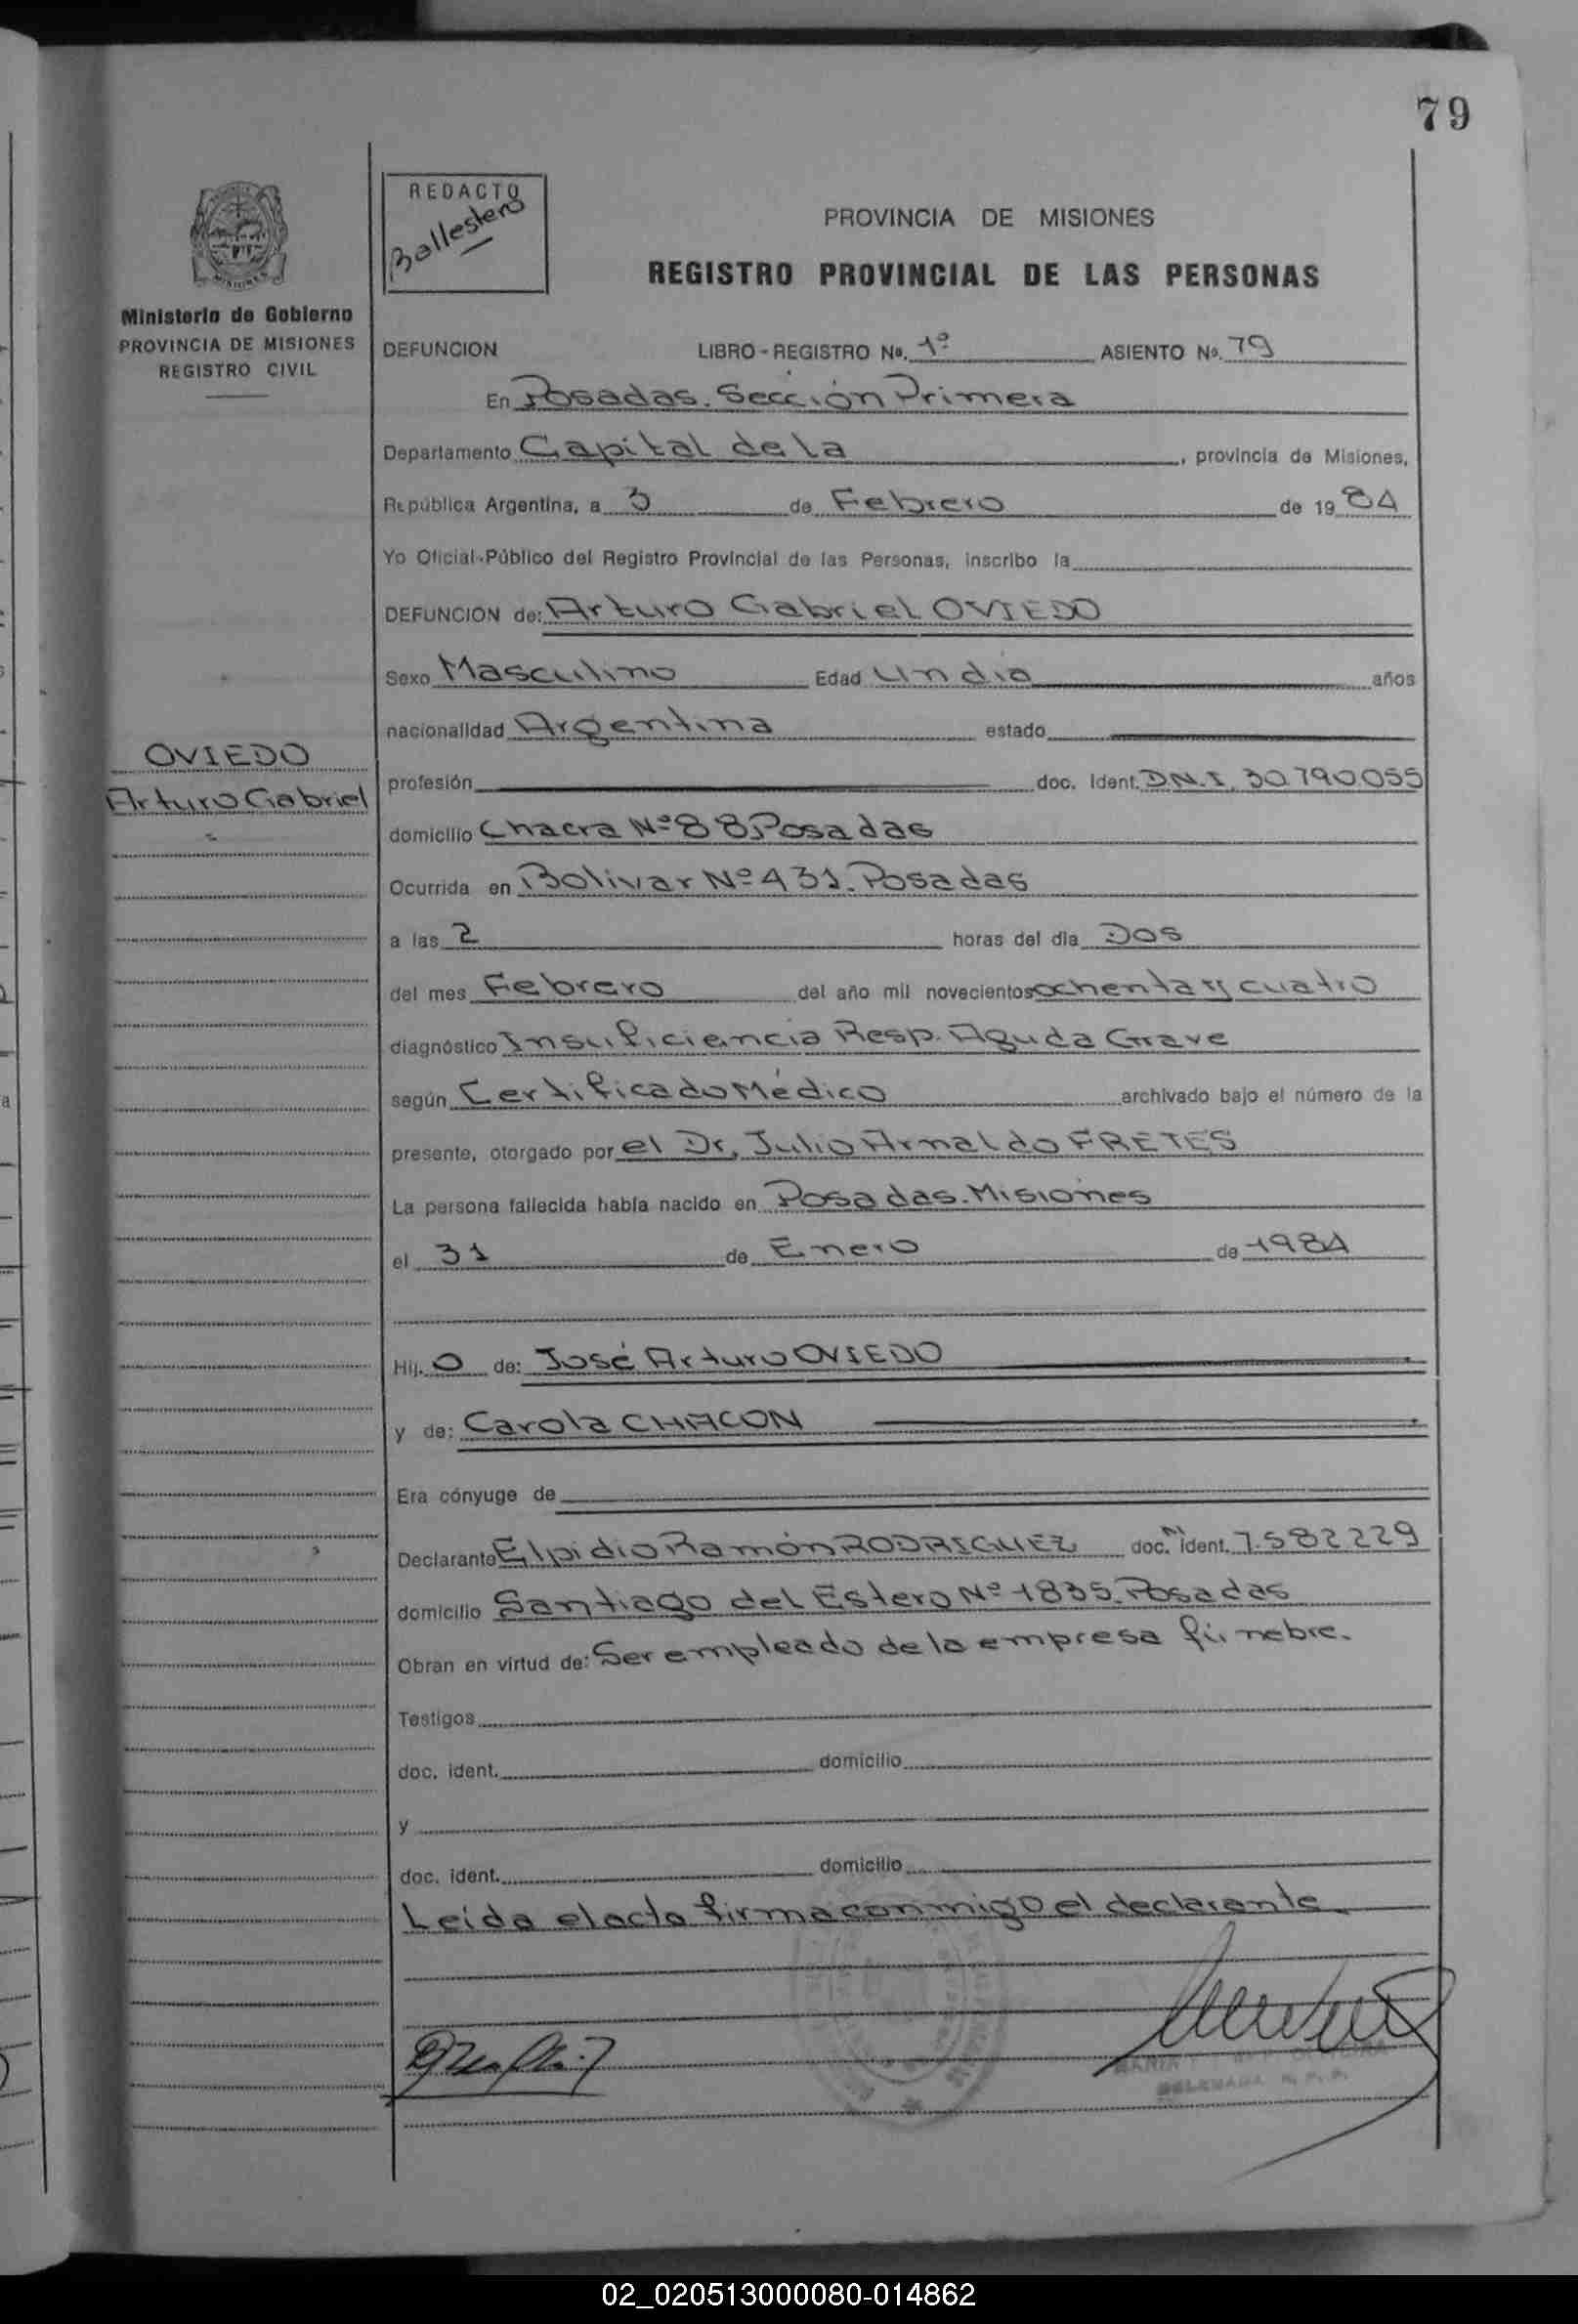 79
REDACTO
Ballestero
PROVINCIA DE MISIONES
REGISTRO PROVINCIAL DE LAS PERSONAS
Ministerio de Gobierno
PROVINCIA DE MISIONES
REGISTRO CIVIL
DEFUNCION LIBRO - REGISTRO Nº. 1º ASIENTO Nº. 79
En Posadas. Sección Primera
Departamento Capital de la, provincia de Misiones,
República Argentina, a 3 de Febrero de 1984
Yo Oficial-Público del Registro Provincial de las Personas, inscribo la
DEFUNCION de: Arturo Gabriel OVIEDO
Sexo Masculino Edad Un día años
nacionalidad Argentina estado
OVIEDO
Arturo Gabriel
profesión doc. Ident. D.N.I. 30.790.055
domicilio Chacra Nº 88, Posadas
Ocurrida en Bolivar Nº 431. Posadas
a las 2 horas del dia Dos
del mes Febrero del año mil novecientos ochenta y cuatro
diagnóstico Insuficiencia Resp. Aguda Grave
según Certificado Médico archivado bajo el número de la
presente, otorgado por el Dr. Julio Arnaldo FRETES
La persona fallecida había nacido en Posadas. Misiones
el 31 de Enero de 1984
Hij o de: José Arturo OVIEDO
y de: Carola CHACON
Era cónyuge de
Declarante Elpidio Ramón RODRIGUEZ doc. ident. 7.582229
domicilio Santiago del Estero Nº 1835. Posadas
Obran en virtud de: Ser empleado de la empresa fúnebre.
Testigos
doc. ident. domicilio
y
doc. ident. domicilio
Leída el acta firma conmigo el declarante.
02_020513000080-014862